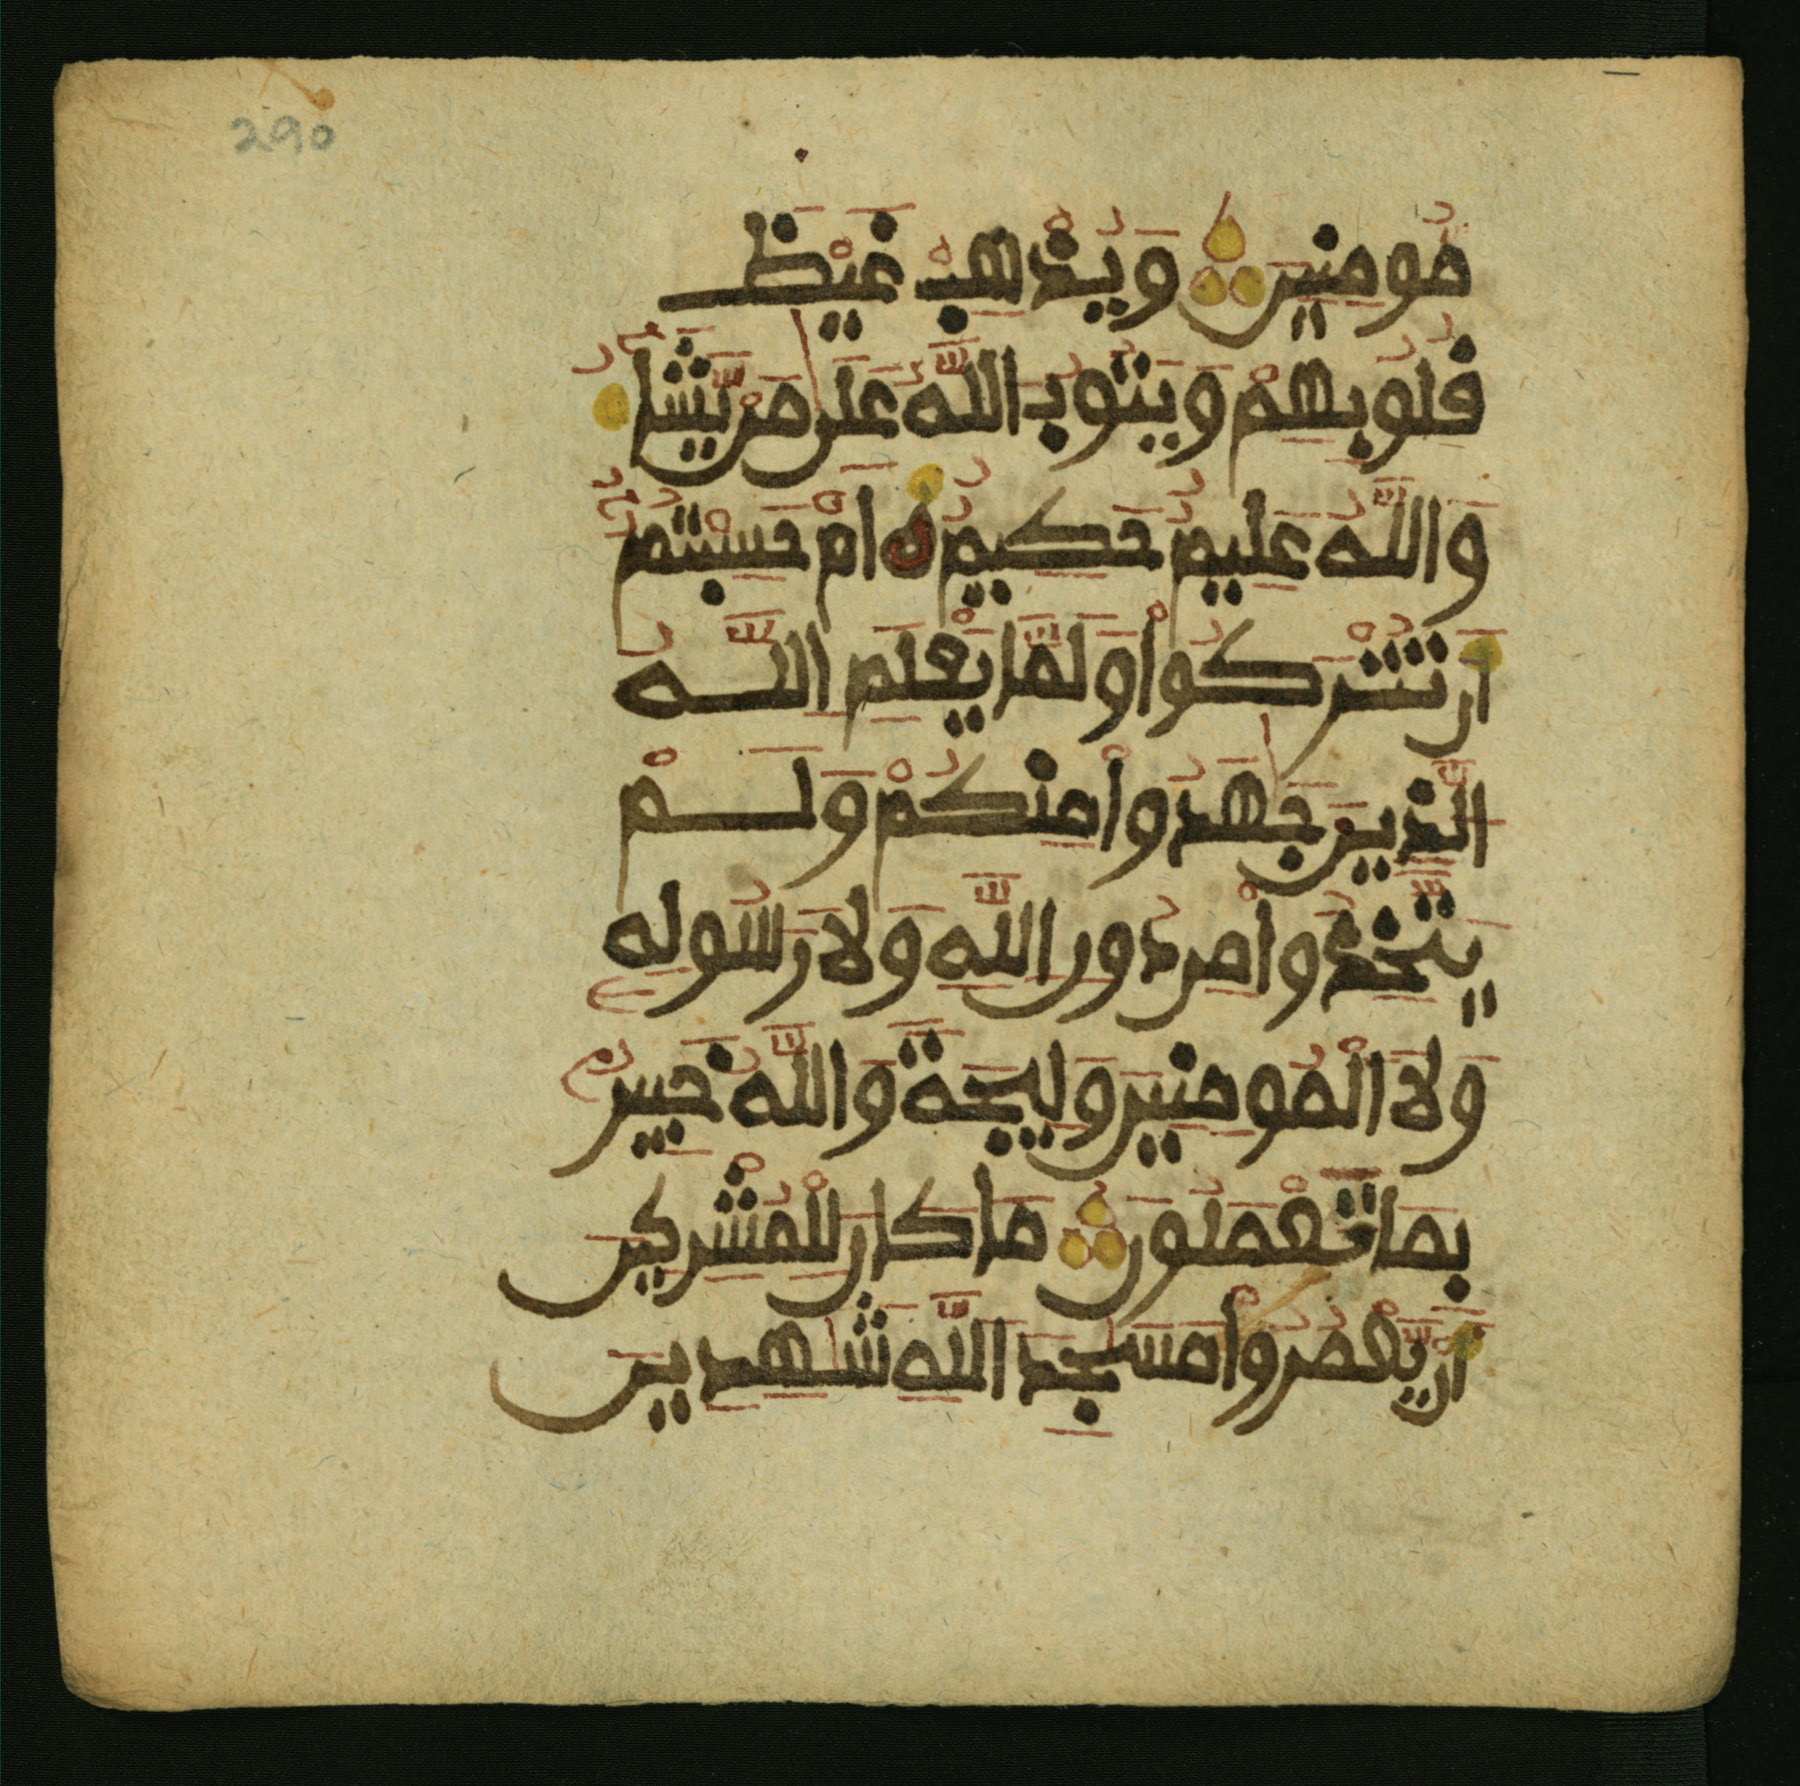 290
مُومِنِينَ وَيُذْهِبْ غَيْظَ
قُلُوبِهِمْ وَيَتُوبُ اللَّهُ عَلَى مَنْ يَّشَا
وَاللَّهُ عَلِيمٌ حَكِيمٌ اَمْ حَسِبْتُمُ
أَن تُتْرَكُواْ وَلَمَّا يَعْلَمِ اللَّهُ
الَّذِينَ جَهَدُواْ مِنكُمْ وَلَمْ
يَتَّخِذُواْ مِن دُونِ اللَّهِ وَلَا رَسُولِهِ
وَلَا الْمُومِنِينَ وَلِيجَةً وَاللَّهُ خَبِيرٌ
بِمَا تَعْمَلُونَ مَا كَانَ لِلْمُشْرِكِينَ
أَنْ يَّعْمُرُواْ مَسَجِدَ اللَّهِ شَهِدِينَ